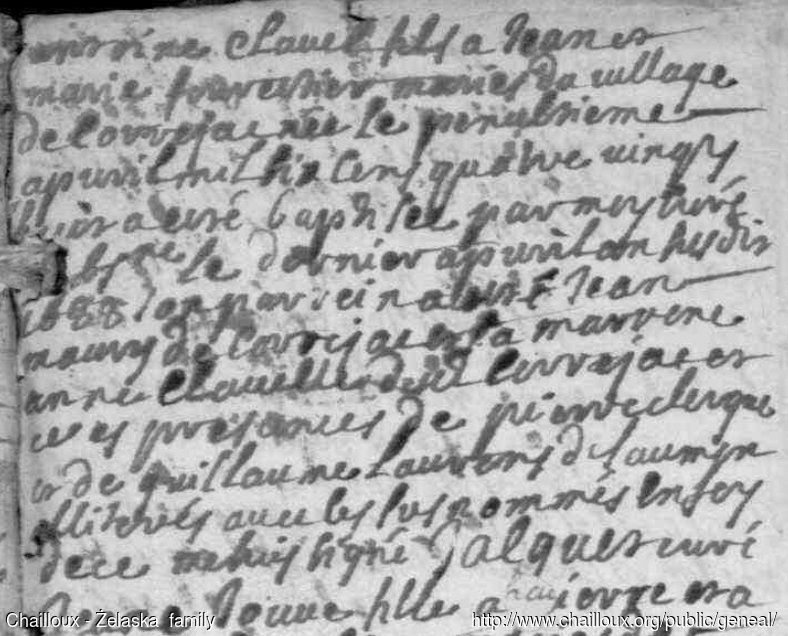 Clavel fils a Jean et
marie mariés du village
de Correjac née le penultieme
apvril mil six cens quatre vingts
huit a esté baptisée par moy curé
le dernier apvril an susdit
1688 son parrein a esté Jean
maury de Correjac et la marrene
anne Clavelle dud Correjac et
ce es presances de pierre clergue
et de guillaume Laurens
illiterés avec les susnommés en foy
de ce me suis signé Salques curé
Jouve fille a et a
Chailloux - Żelaska family
http://www.chailloux.org/public/geneal/